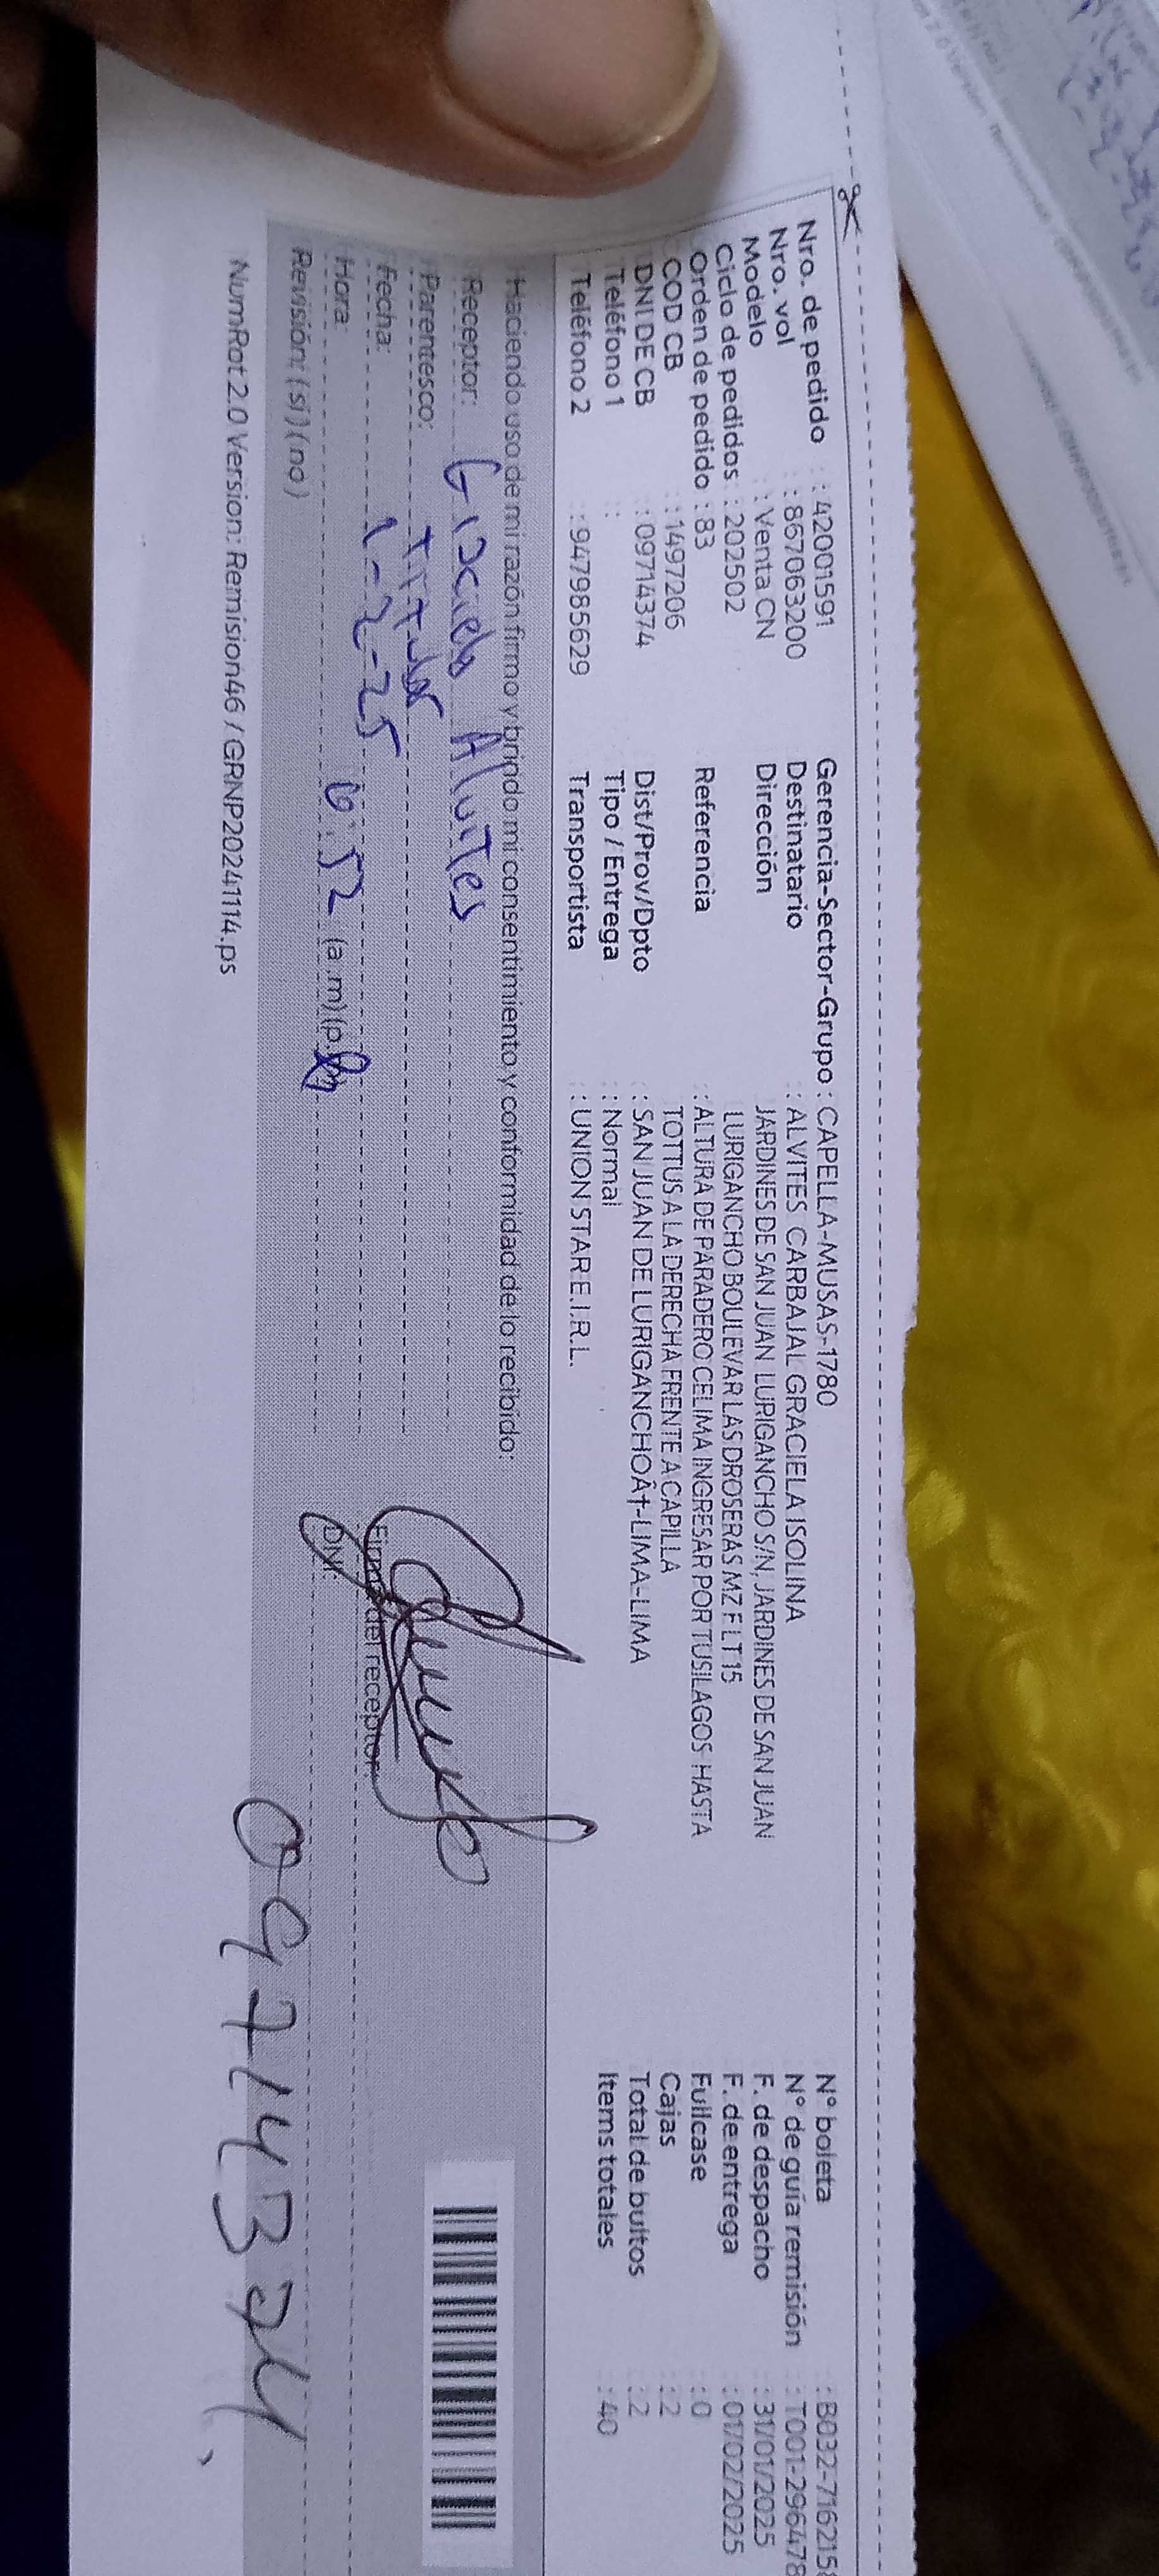 Nro. de pedido : 42001591
Nro. vol : 867063200
Modelo : Venta CN
Ciclo de pedidos : 202502
Orden de pedido : 83
COD CB : 1497206
DNI DE CB : 09714374
Teléfono 1 :
Teléfono 2 : 947985629
Gerencia-Sector-Grupo : CAPELLA-MUSAS-1780
Destinatario : ALVITES CARBAJAL GRACIELA ISOLINA
Dirección JARDINES DE SAN JUAN LURIGANCHO S/N, JARDINES DE SAN JUAN
LURIGANCHO BOULEVAR LAS DROSERAS MZ F LT 15
Referencia : ALTURA DE PARADERO CELIMA INGRESAR POR TUSILAGOS HASTA
TOTTUS A LA DERECHA FRENTE A CAPILLA
Dist/Prov/Dpto : SAN JUAN DE LURIGANCHOÂ†-LIMA-LIMA
Tipo / Entrega : Normal
Transportista : UNION STAR E.I.R.L.
N° boleta : B032-716215
N° de guía remisión : T001-296478
F. de despacho : 31/01/2025
F. de entrega : 01/02/2025
Fullcase : 0
Cajas : 2
Total de bultos : 2
Items totales : 40
Haciendo uso de mi razón firmo y brindo mi consentimiento y conformidad de lo recibido:
Receptor: Alvites
Parentesco: titular
Fecha: 1-2-25
Hora: 6:52 (a.m) (p.m)
Revisión: (si) (no)
Firma del receptor
DNI: 09714374
NumRot 2.0 Version: Remision46 / GRNP20241114.ps